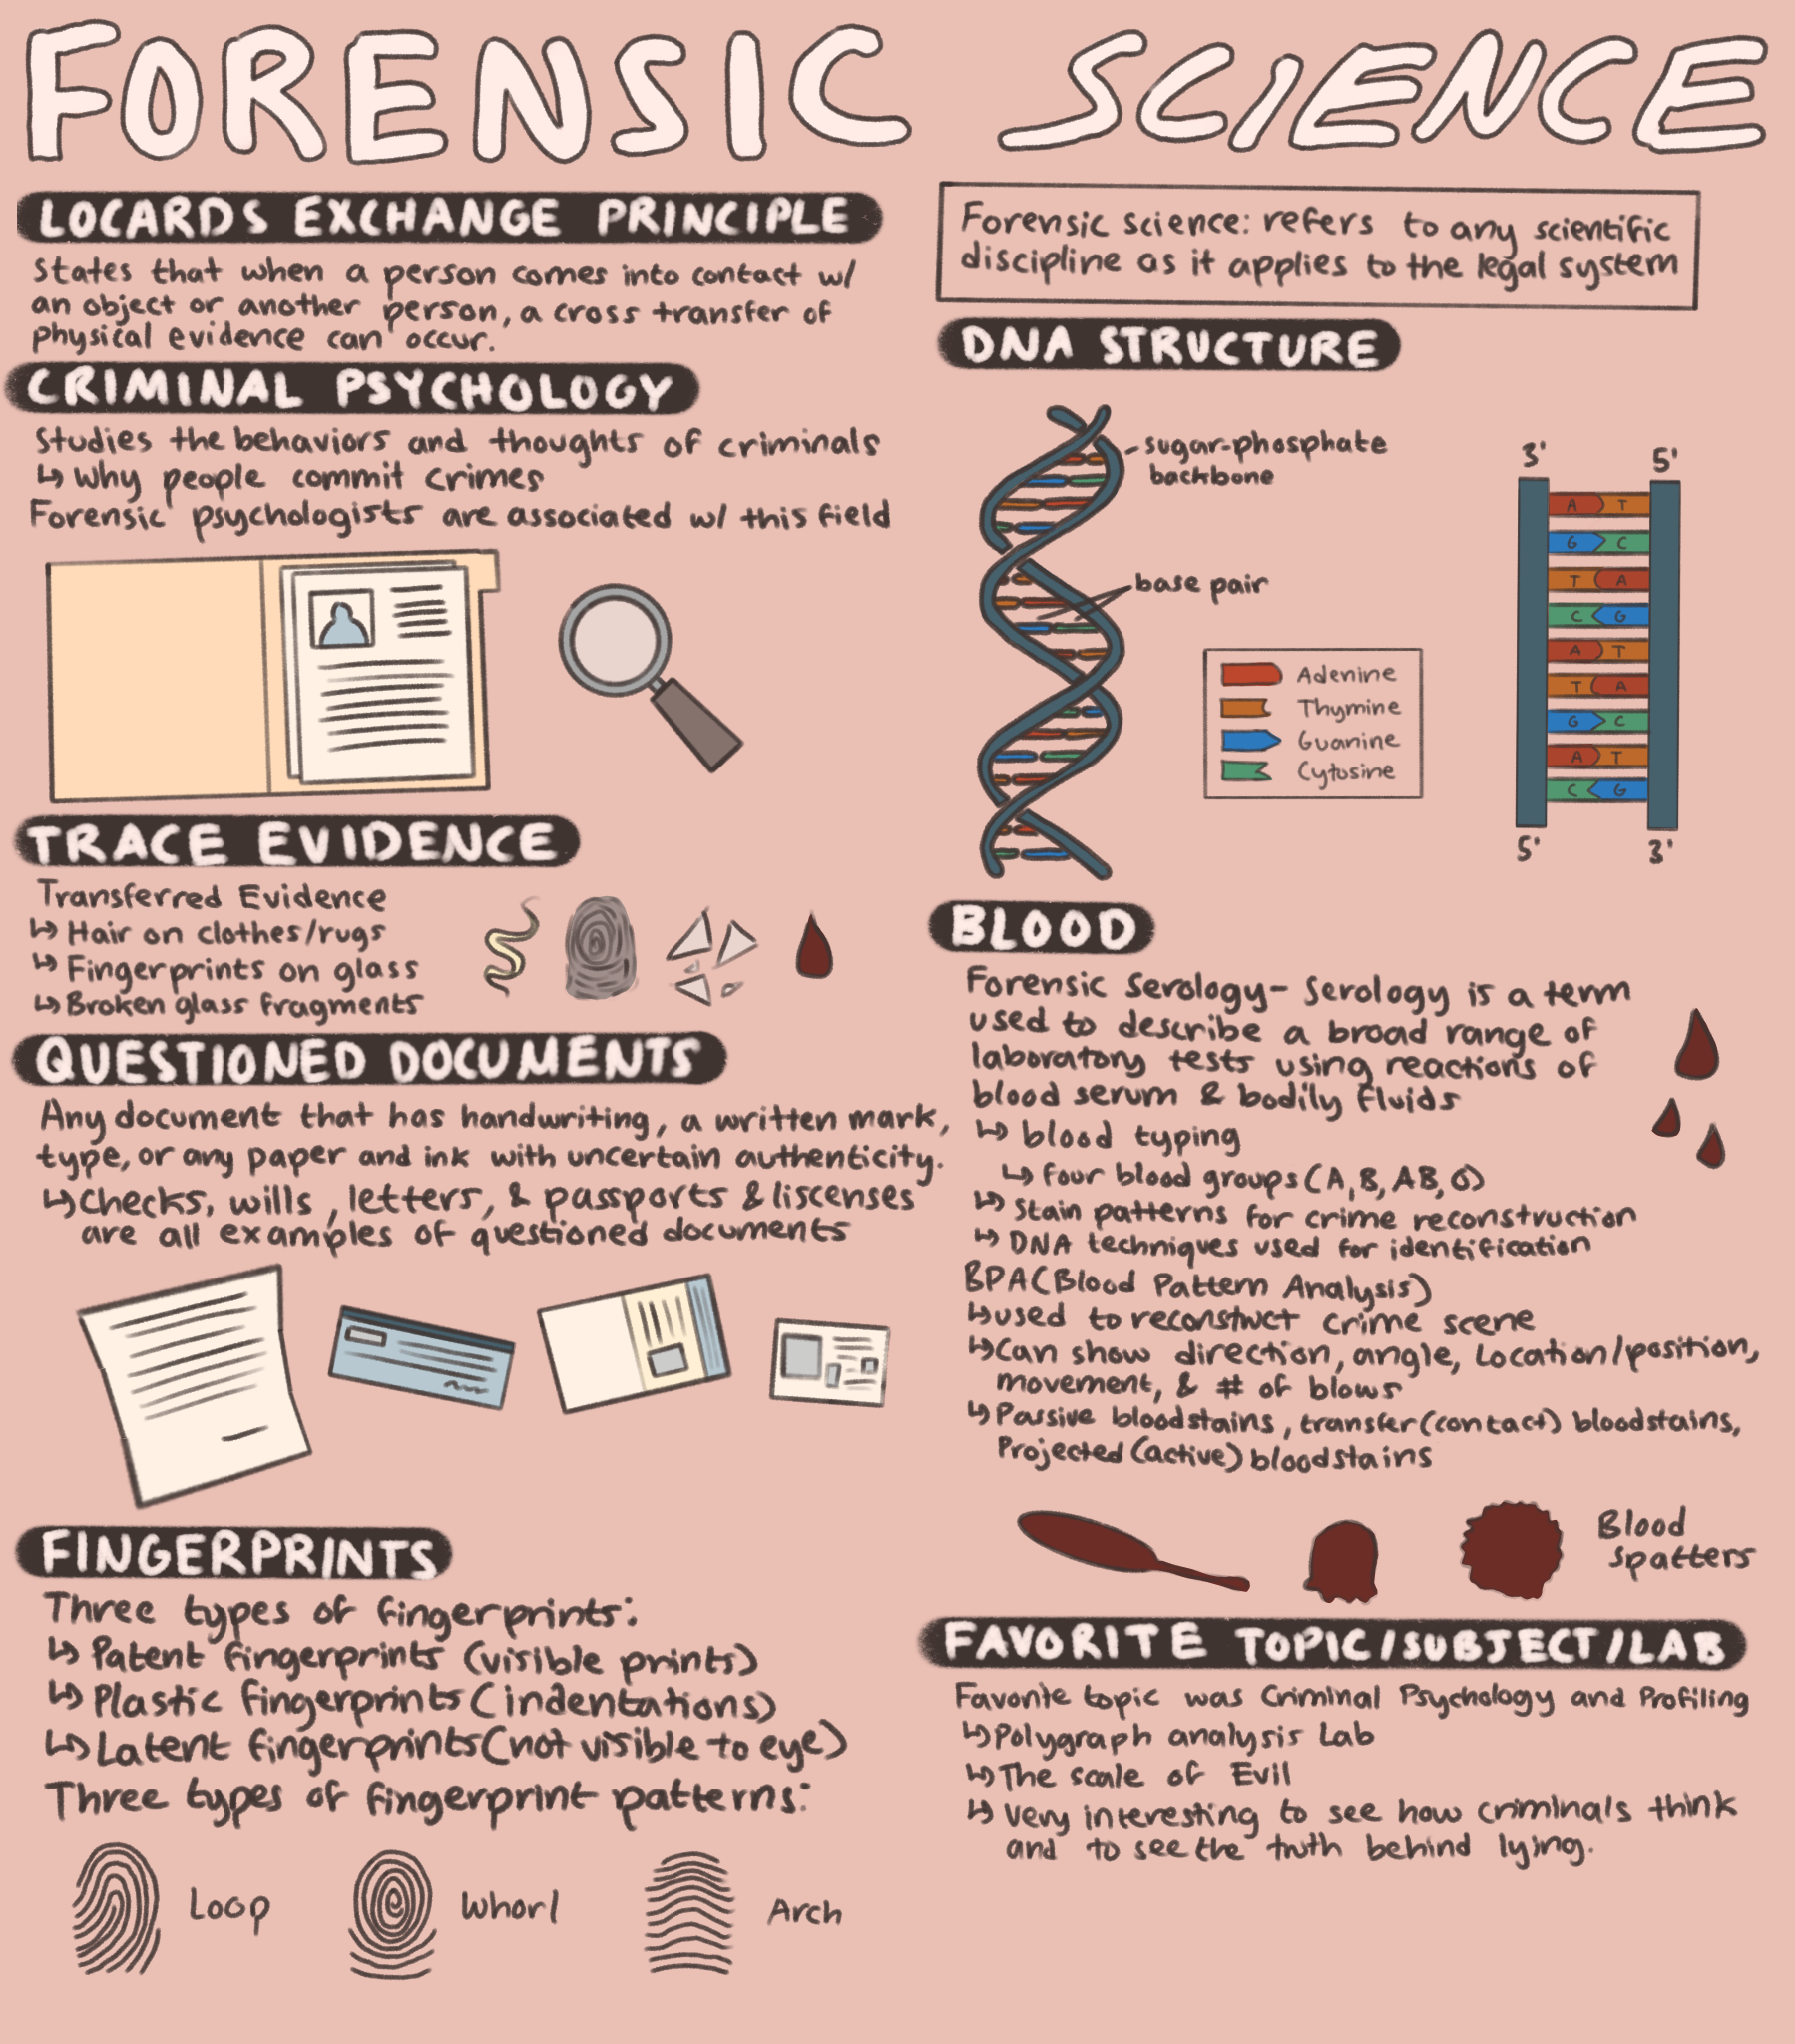 FORENSIC SCIENCE
LOCARDS EXCHANGE PRINCIPLE
States that when a person comes into contact w/
an object or another person, a cross transfer of
physical evidence can occur.
CRIMINAL PSYCHOLOGY
Studies the behaviors and thoughts of criminals
↳ Why people commit crimes
Forensic psychologists are associated w/ this field
TRACE EVIDENCE
Transferred Evidence
↳ Hair on clothes/rugs
↳ Fingerprints on glass
↳ Broken glass fragments
QUESTIONED DOCUMENTS
Any document that has handwriting, a written mark,
type, or any paper and ink with uncertain authenticity.
↳ Checks, wills, letters, & passports & liscenses
are all examples of questioned documents
FINGERPRINTS
Three types of fingerprints:
↳ Patent fingerprints (visible prints)
↳ Plastic fingerprints (indentations)
↳ Latent fingerprints (not visible to eye)
Three types of fingerprint patterns:
Loop
Whorl
Arch
Forensic science: refers to any scientific
discipline as it applies to the legal system
DNA STRUCTURE
sugar-phosphate
backbone
base pair
Adenine
Thymine
Guanine
Cytosine
3' 5'
A T
G C
T A
C G
A T
T A
G C
A T
C G
5' 3'
BLOOD
Forensic Serology- Serology is a term
used to describe a broad range of
laboratory tests using reactions of
blood serum & bodily fluids
↳ blood typing
↳ four blood groups (A, B, AB, O)
↳ Stain patterns for crime reconstruction
↳ DNA techniques used for identification
BPA (Blood Pattern Analysis)
↳ used to reconstruct crime scene
↳ Can show direction, angle, Location/position,
movement, & # of blows
↳ Passive bloodstains, transfer (contact) bloodstains,
Projected (active) bloodstains
Blood
spatters
FAVORITE TOPIC/SUBJECT/LAB
Favorite topic was Criminal Psychology and Profiling
↳ Polygraph analysis Lab
↳ The scale of Evil
↳ Very interesting to see how criminals think
and to see the truth behind lying.